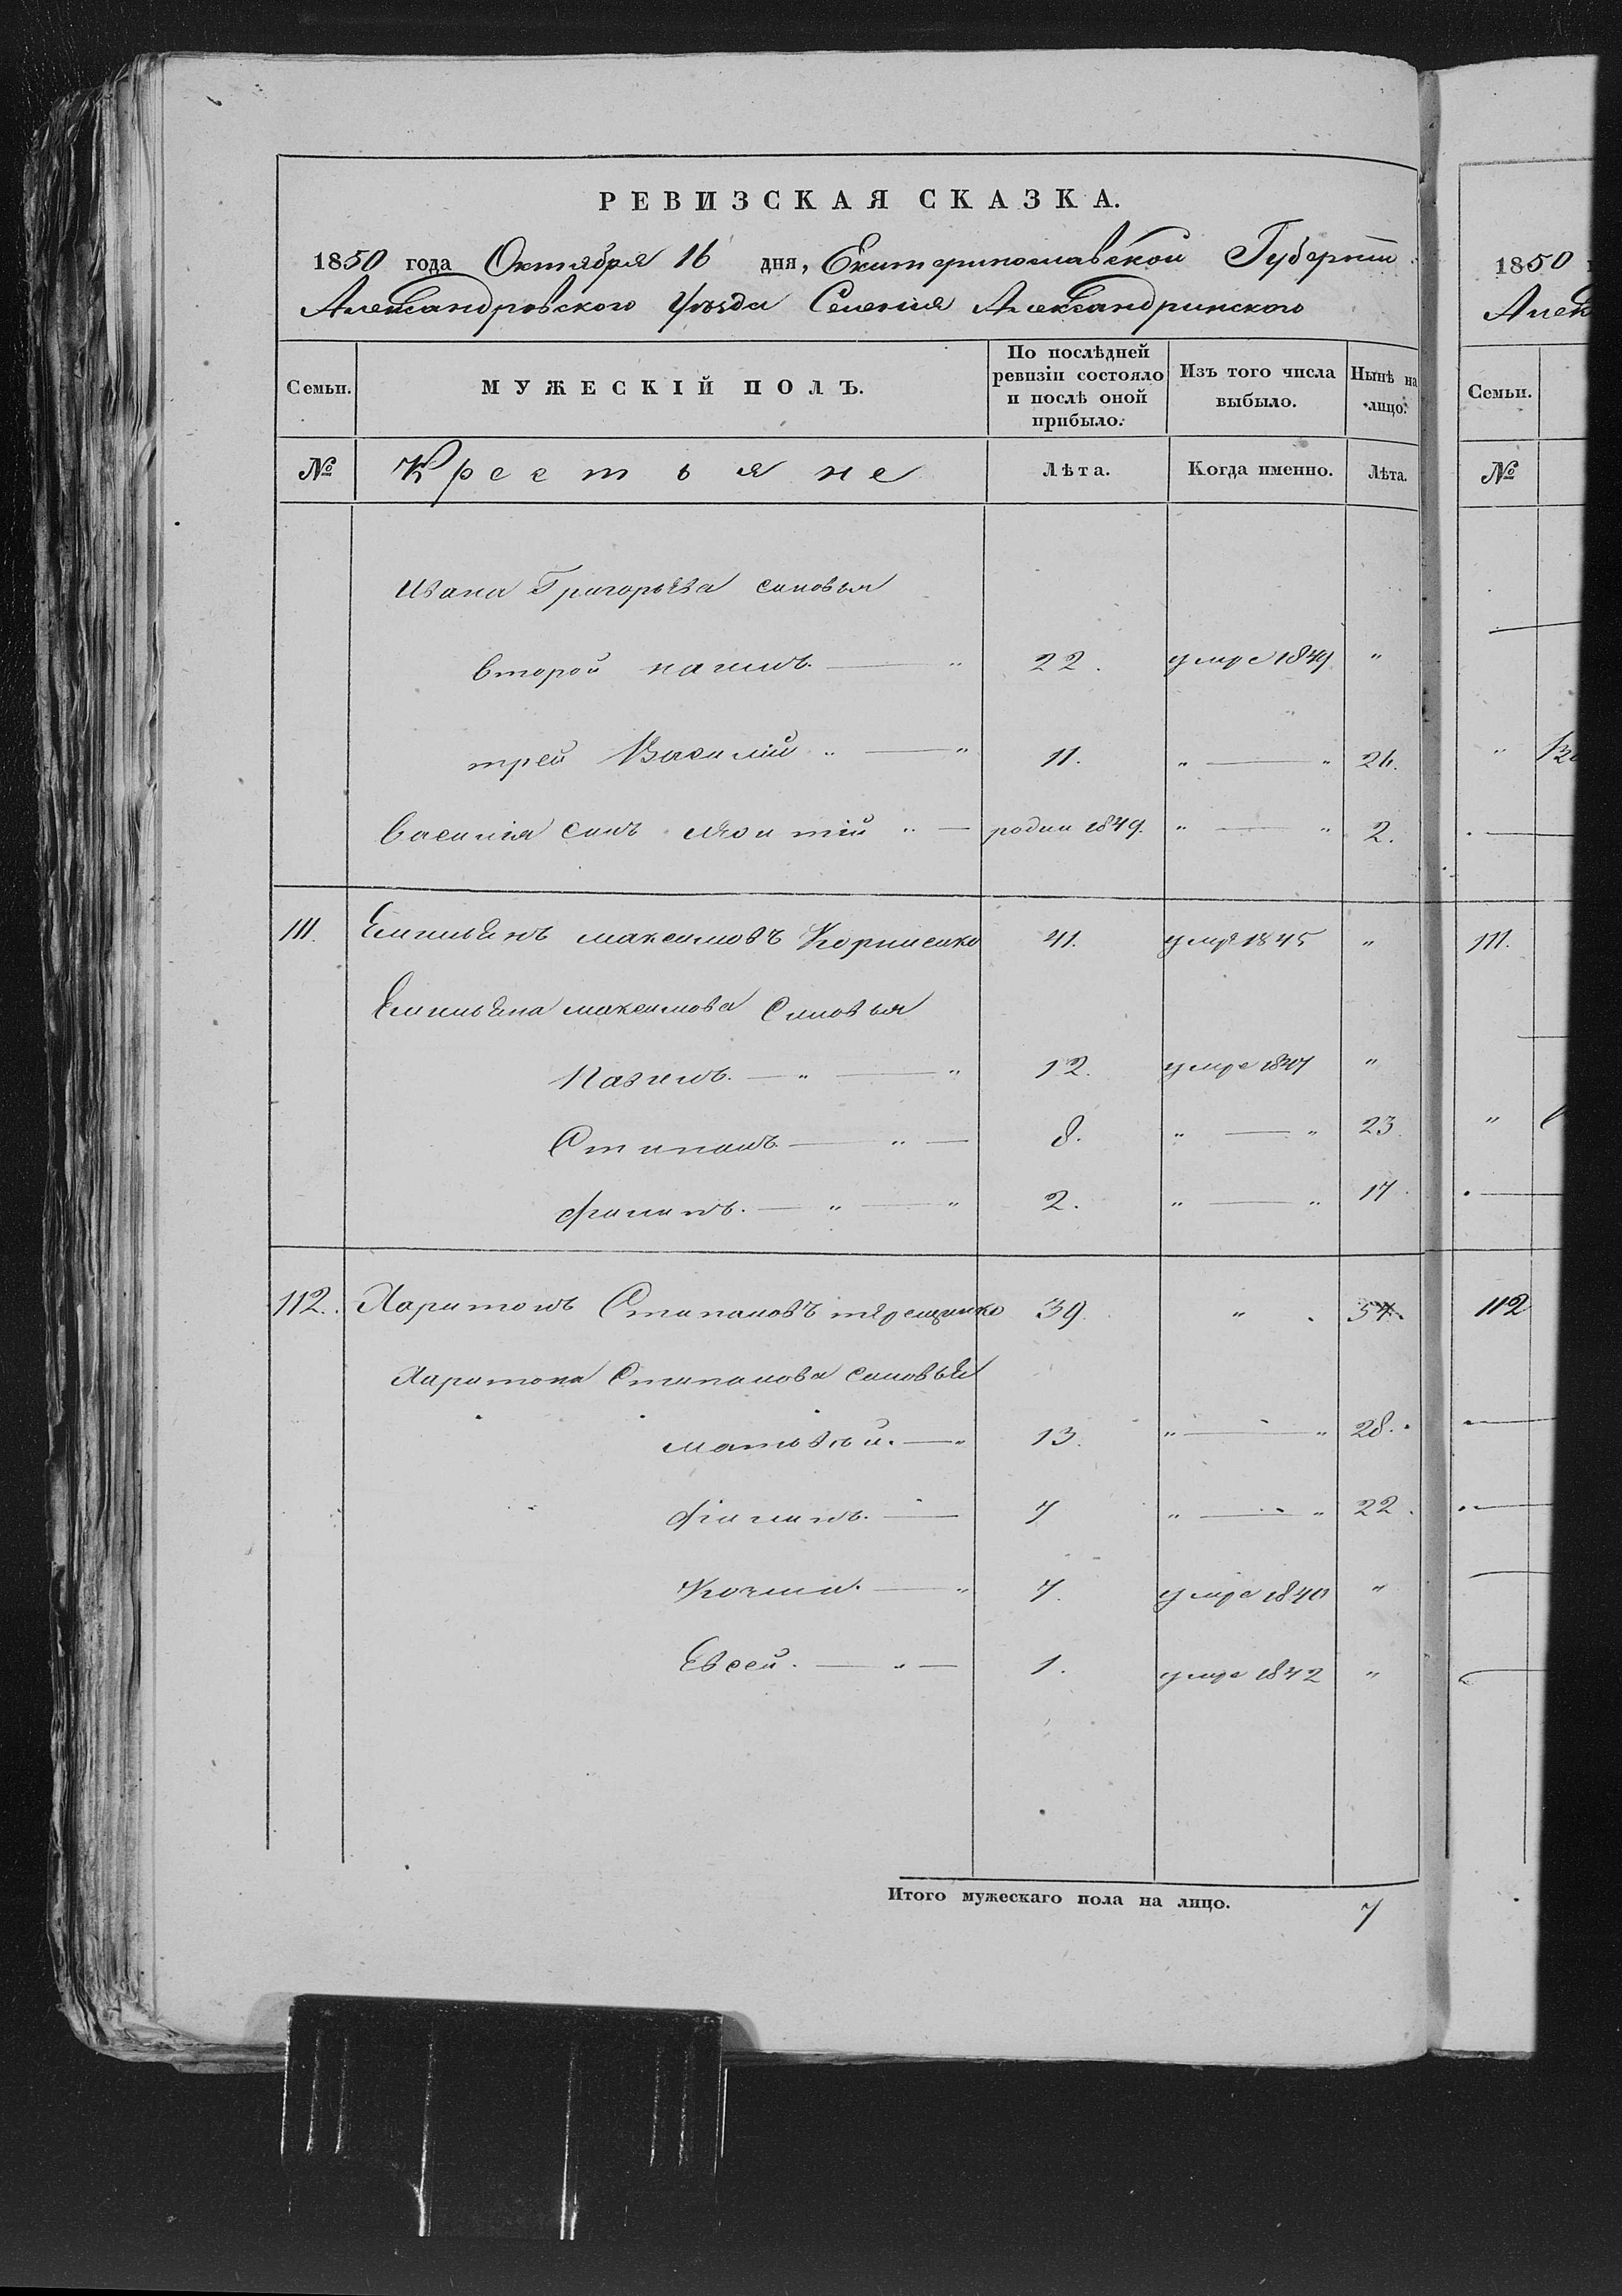 РЕВИЗСКАЯ СКАЗКА.
1850 года Октября 16 дня, Екатеринославской Губернии
Александровского Уѣзда Селенія Александринского
Семьи. МУЖЕСКІЙ ПОЛЪ. По послѣдней ревизіи состояло и послѣ оной прибыло. Изъ того числа выбыло. Нынѣ на лицо.
№ Крестьяне Лѣта. Когда именно. Лѣта.
Ивана Григорьева синовья
второй 22. умре 1849 "
трей Василій " — " 11. " — " 26.
Василія синъ " — родил 1849. " — " 2.
111. Емильянъ максимовъ Корниенко 41. умре 1845 "
Емильяна максимова Синовья
12. умре "
Стипанъ. — " — 8. " — " 23
филипъ. — " — " 2. " — " 17.
112. Харитонъ Стипановъ терещенко 39. " . 54.
Харитона Стипанова синовья
матвѣй. — " 13. " — " 28.
филипъ. — 7 " — " 22.
Козма. — " 7. умре 1840 "
Евсей. — " — 1. умре 1842 "
Итого мужескаго пола на лицо. 7
1850
Алек
Семьи.
№
111.
112